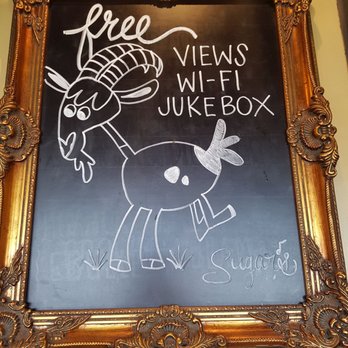 free
VIEWS
WI-FI
JUKEBOX
Sugar